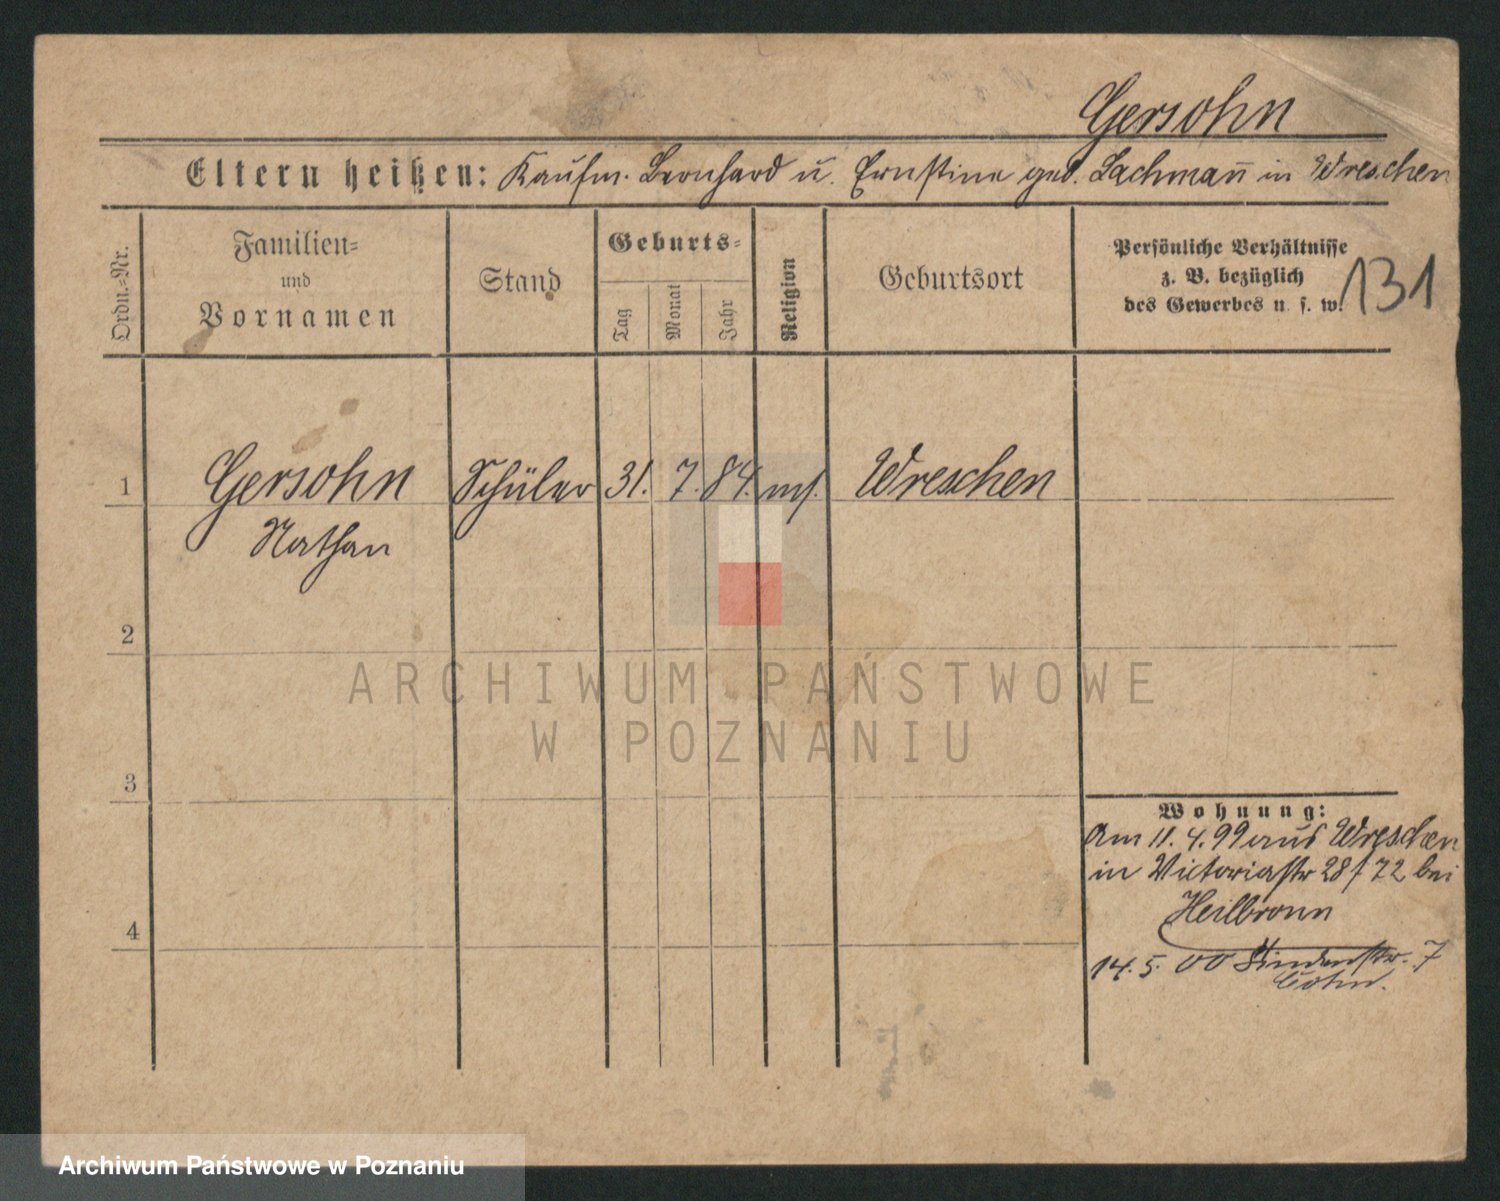 Gersohn
Eltern heißen: Kaufm. Bernhard u. Ernstine geb. Lachman̄ in Wreschen
Ordn.=Nr.
Familien=
und
Vornamen
Stand
Geburts=
Tag
Monat
Jahr
Religion
Geburtsort
Persönliche Verhältnisse
z. B. bezüglich
des Gewerbes u. s. w.
131
1 Gersohn Schüler 31. 7. 84. mos. Wreschen
Nathan
2
ARCHIWUM PAŃSTWOWE
W POZNANIU
3
Wohnung:
Am 11.4.99 aus Wreschen
in Victoriastr 28/72 bei
Heilbronn
4
14.5.00 Lindenstr. 7
Cohn.
Archiwum Państwowe w Poznaniu